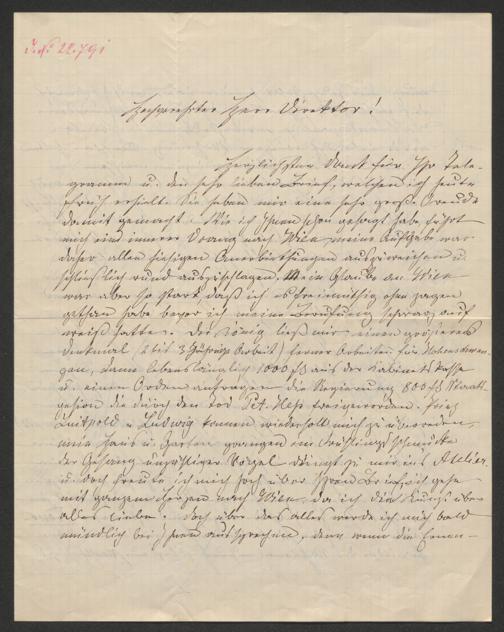 J. N. 22.791
Hochgeehrter Herr Direktor!
Herzlichsten Dank für Ihr Tele-
gramm u. den sehr lieben Brief, welchen ich heute
früh erhielt. Sie haben mir eine sehr große Freude
damit gemacht. Wie ich Ihnen schon gesagt habe führt
mich ein innerer Drang nach Wien, meine Aufgabe war
daher allen hiesigen Anerbiethungen auszuweichen u.
schließlich rund auszuschlagen. Mein Glaube an Wien
war aber so stark daß ich es freimüthig ohne zagen
gethan habe bevor ich meine Berufung schwarz auf
weiß hatte. Der König ließ mir einen größeren
Denkmal (2 bis 3 Jährige Arbeit) ferner Arbeiten für Hohenschwan-
gau, dann lebenslänglich 1000 fl aus der Kabinets Kasse
u. einen Orden antragen die Regierung 800 fl Staats
pension die durch den Tod Pet. Hess freigeworden. Prinz
Luitpold u. Ludwig kamen wiederholt mich zu überreden,
mein Haus u. Garten prangen im Frühlingsschmucke
der Gesang unzähliger Vögel dringt zu mir ins Atelier
u. doch freute ich mich hoch über Ihren Brief, ich gehe
mit ganzem Herzen nach Wien, da ich die Kunst über
alles liebe. Doch über das alles werde ich mich bald
mündlich bei Ihnen aussprechen, denn wenn die Ernen-